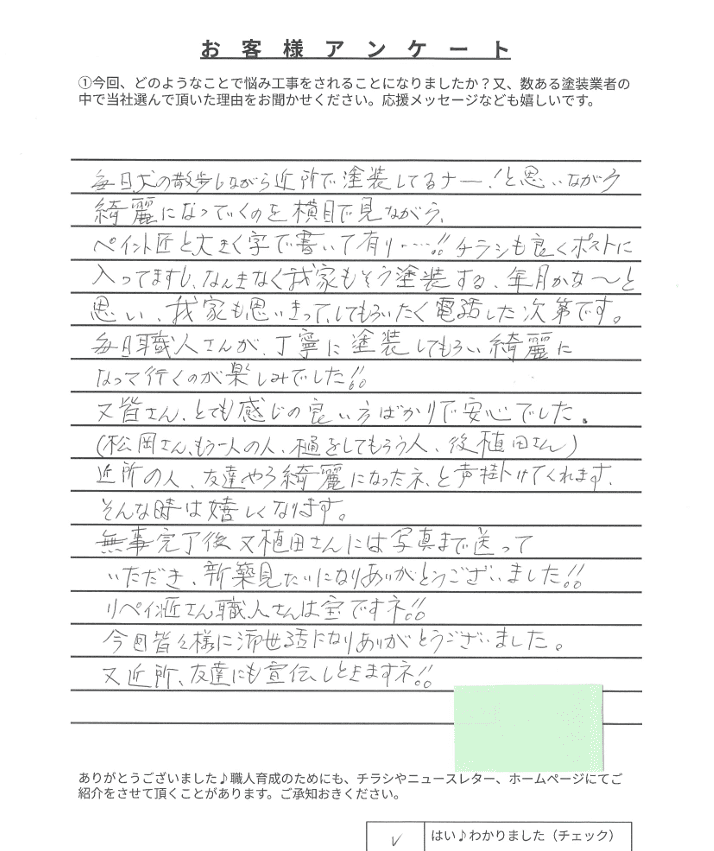 お客様アンケート
①今回、どのようなことで悩み工事をされることになりましたか？又、数ある塗装業者の
中で当社選んで頂いた理由をお聞かせください。応援メッセージなども嬉しいです。
毎日犬の散歩しながら近所で塗装してるナー！と思いながら
綺麗になっていくのを横目で見ながら、
ペイント匠と大きく字で書いて有り……!! チラシも良くポストに
入ってますし、なんとなく我家もそろ塗装する、年月かな〜と
思い、我家も思いきって、してもらいたく電話した次第です。
毎日職人さんが、丁寧に塗装してもらい綺麗に
なって行くのが楽しみでした!!
又皆さん、とても感じの良い方ばかりで安心でした。
(松岡さん、もう一人の人、樋をしてもらう人、後植田さん)
近所の人、友達やら綺麗になったネ、と声掛けてくれます、
そんな時は嬉しくなります。
無事完了後又植田さんには写真まで送って
いただき、新築見たいになりありがとうございました!!
リペイント匠さん職人さんは宝ですネ!!
今回皆々様に御世話になりありがとうございました。
又近所、友達にも宣伝、しときますネ!!
ありがとうございました♪職人育成のためにも、チラシやニュースレター、ホームページにてご
紹介をさせて頂くことがあります。ご承知おきください。
✓ はい♪わかりました（チェック）